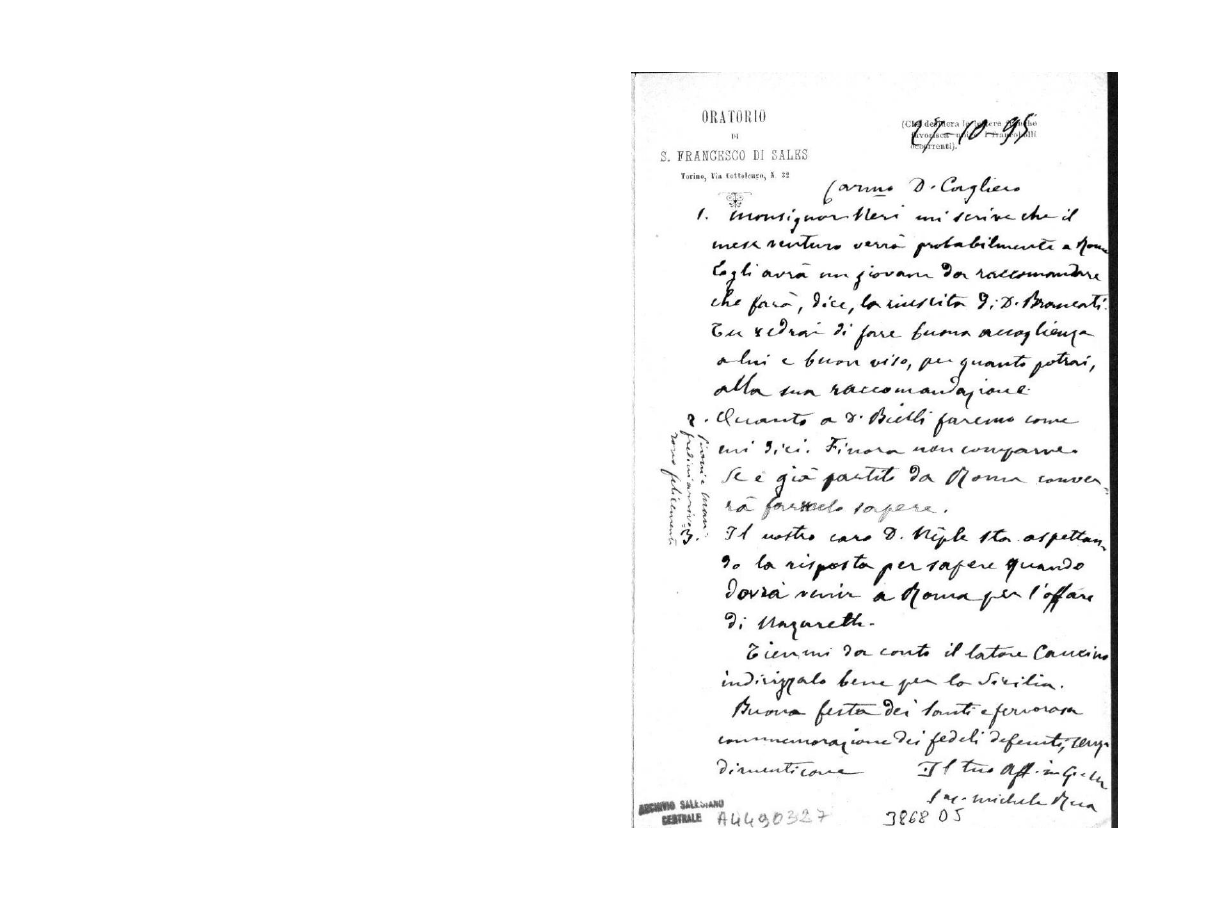 ORATORIO
DI
S. FRANCESCO DI SALES
Torino, Via Cottolengo, N. 32
(Chi desidera lettere
favorisca i francobolli
occorrenti).
27-10-95
Carmo D. Cagliero
1. Monsignor Neri mi scrive che il
mese venturo verrà probabilmente a Roma
Egli avrà un giovane da raccomandare
che farà, dice, la riuscita di D. Brancati.
Tu vedrai di fare buona accoglienza
a lui e buon viso, per quanto potrai,
alla sua raccomandazione.
2. Quanto a D. Bielli faremo come
mi dici. Finora non comparve.
Se è già partito da Roma conver-
rà farmelo sapere.
3. Il nostro caro D. sta aspettan
do la risposta per sapere quando
dovrà venir a Roma per l'affare
di Nazareth.
Tienmi da conto il latore
indirizzalo bene per la Sicilia.
Buona festa dei Santi e fervorosa
commemorazione dei fedeli defunti, senza
dimenticare
Il tuo Aff. in G. e M.
Sac. Michele Rua
rono felicemente
ARCHIVIO SALESIANO
CENTRALE
A4490327
3868 D5